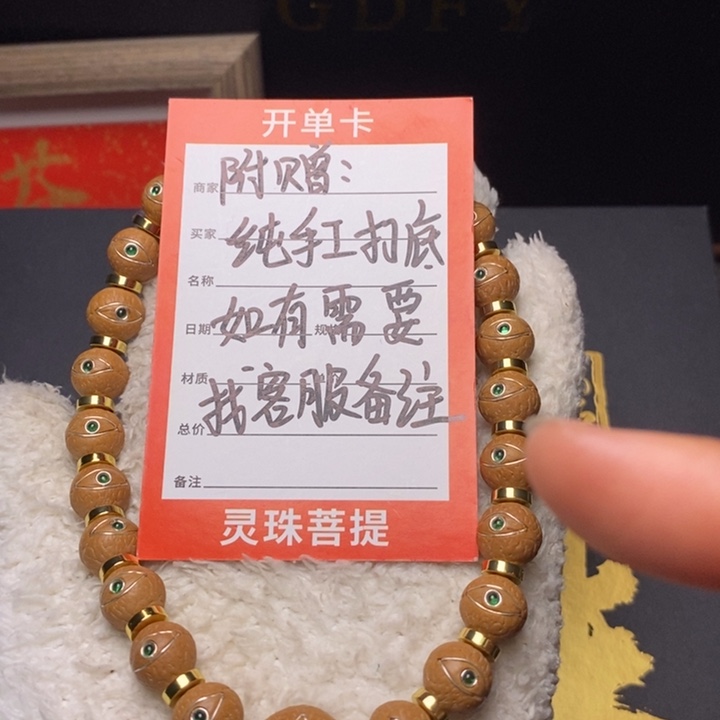 GDFY
开单卡
商家 附赠：
买家 纯手工打底
名称
日期 如有需要
材质 找客服备注
总价
备注
灵珠菩提